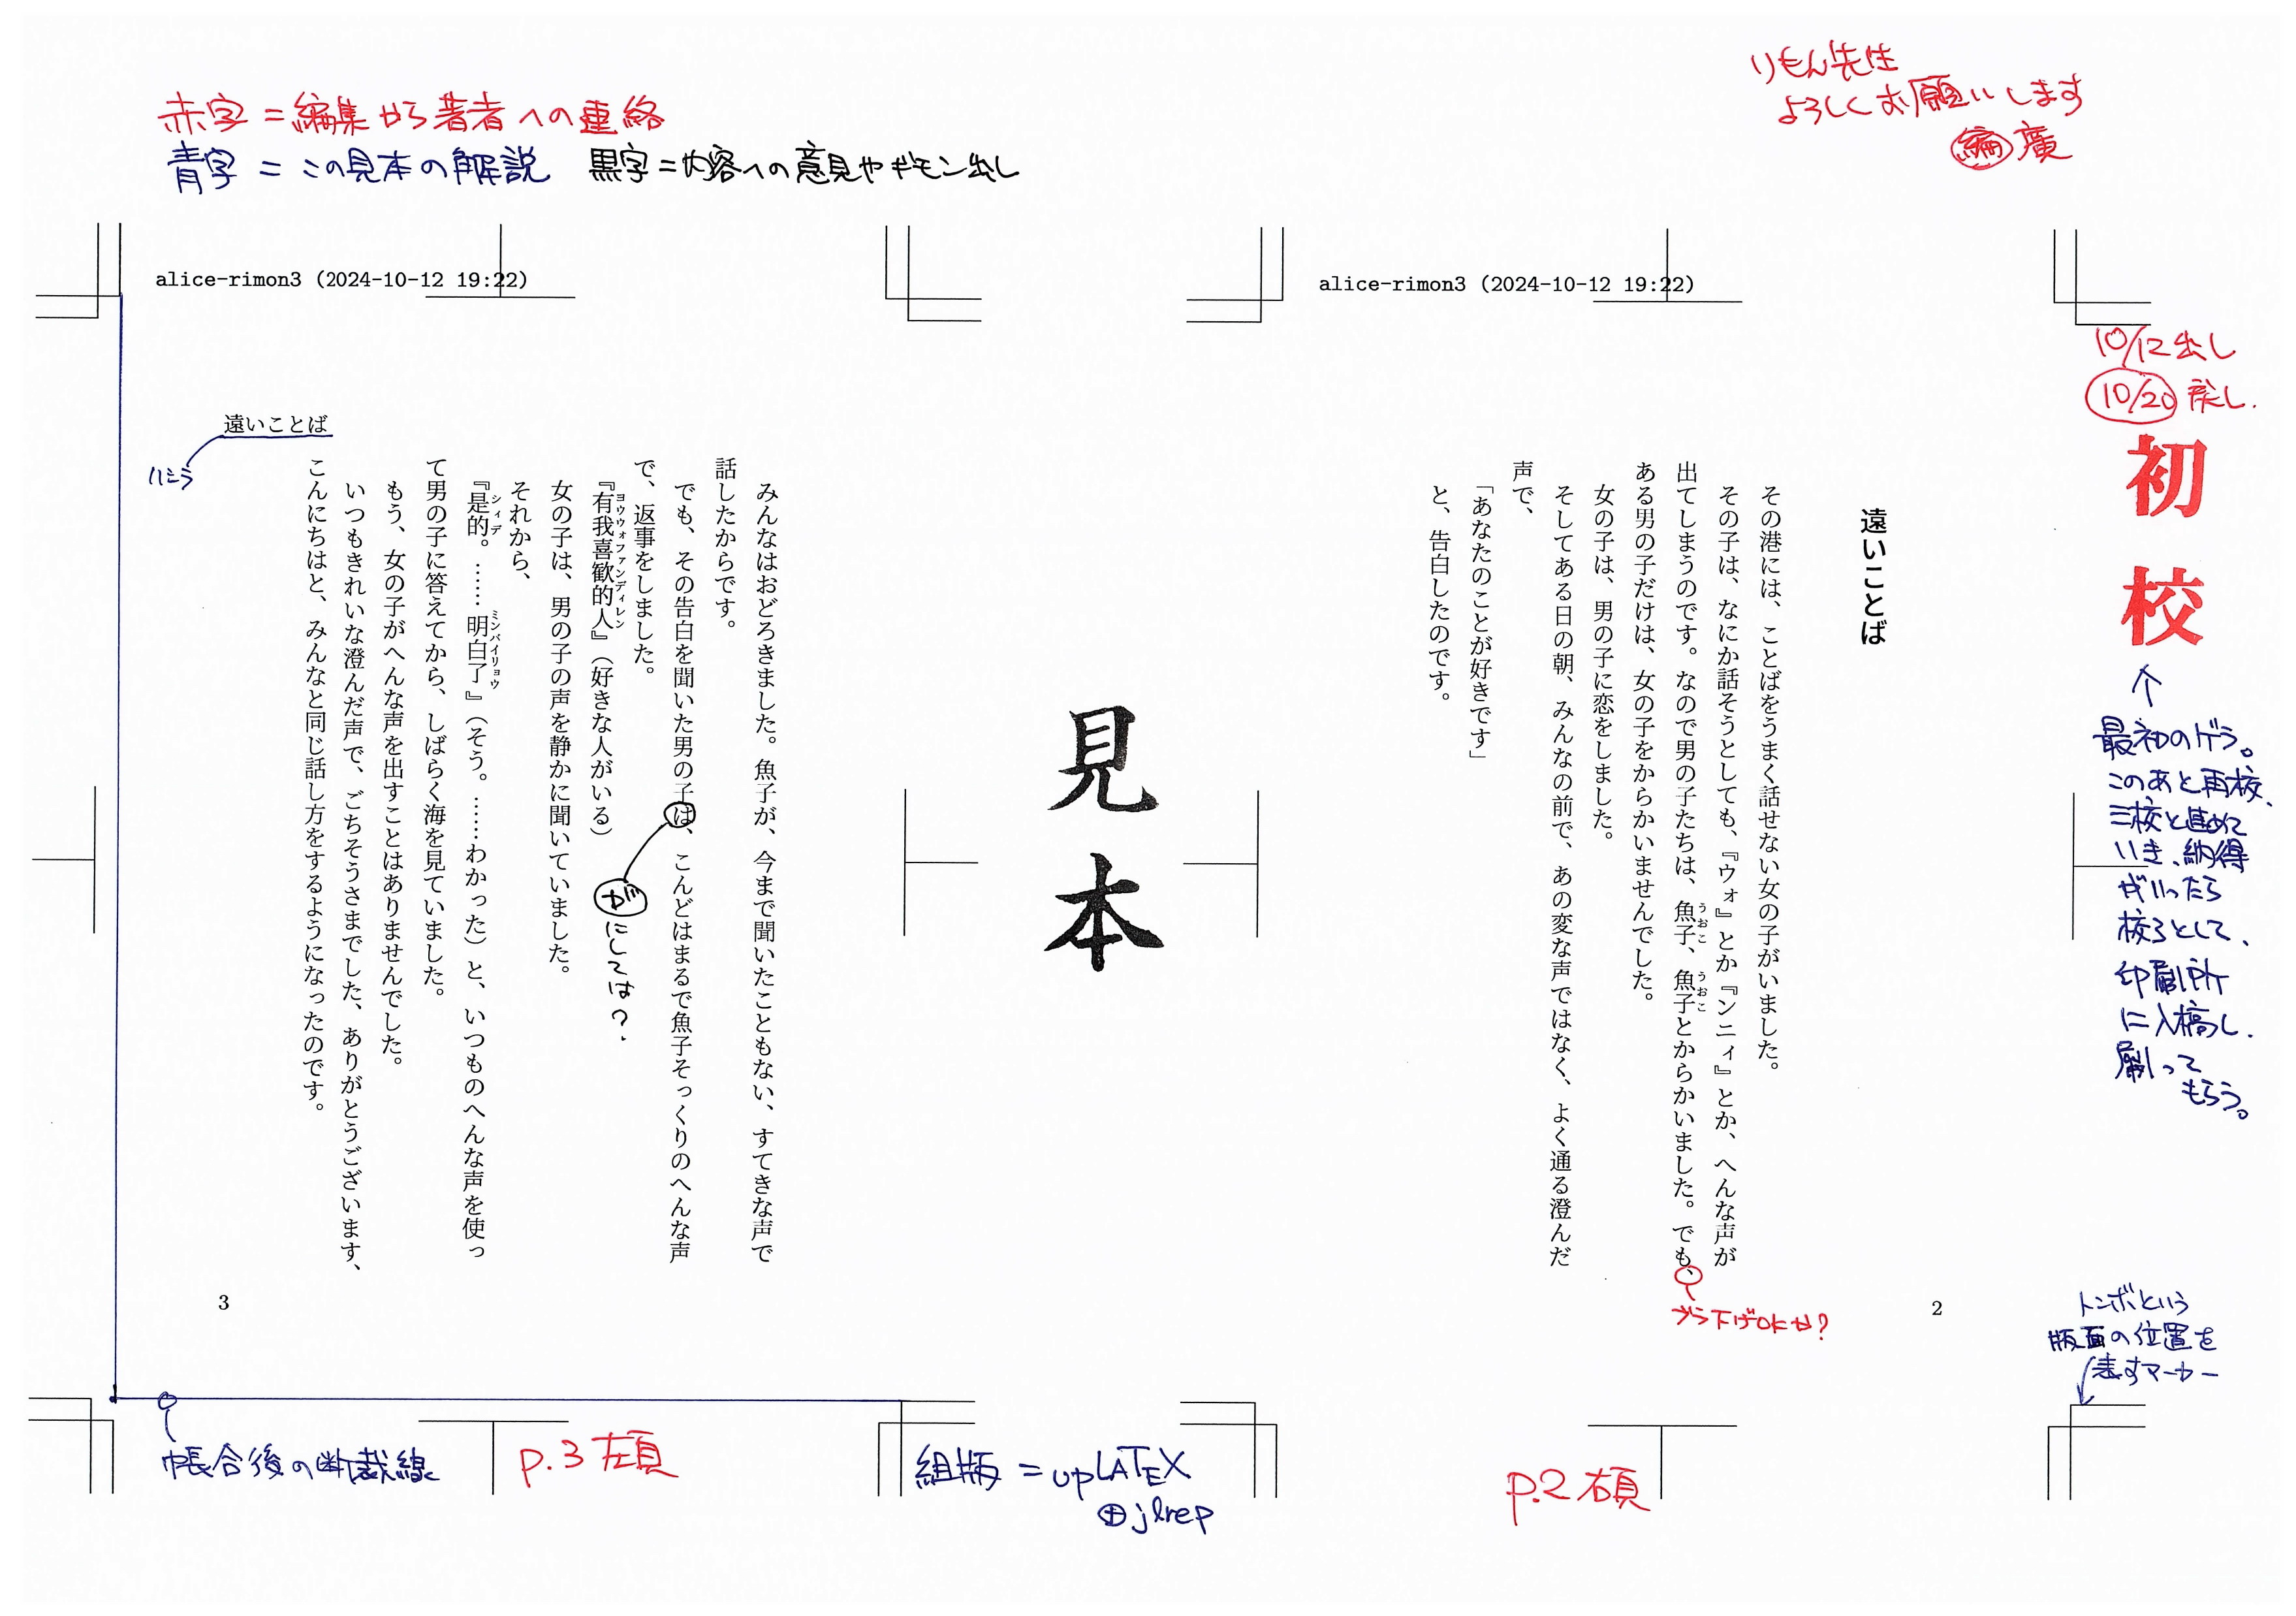 赤字=編集から著者への連絡
青字=この見本の解説 黒字=内容への意見やギモン出し
りもん先生
よろしくお願いします
編 廣
alice-rimon3 (2024-10-12 19:22)
10/12出し
10/20 戻し.
初校
↑
最初のゲラ。
このあと再校、
三校と進めて
いき、納得
がいったら
校了として、
印刷所
に入稿し、
刷って
もらう。
遠いことば
その港には、ことばをうまく話せない女の子がいました。
その子は、なにか話そうとしても、『ウォ』とか『ンニィ』とか、へんな声が
出てしまうのです。なので男の子たちは、魚子、魚子とからかいました。でも、
うおこ うおこ
ある男の子だけは、女の子をからかいませんでした。
女の子は、男の子に恋をしました。
そしてある日の朝、みんなの前で、あの変な声ではなく、よく通る澄んだ
声で、
「あなたのことが好きです」
と、告白したのです。
ブラ下げOKか?
2
トンボという
版面の位置を
表すマーカー
p.2 右頁
見本
alice-rimon3 (2024-10-12 19:22)
みんなはおどろきました。魚子が、今まで聞いたこともない、すてきな声で
話したからです。
でも、その告白を聞いた男の子は、こんどはまるで魚子そっくりのへんな声
で、返事をしました。
『有我喜歓的人』(好きな人がいる)
ヨウウォファンディレン
が にしては?
女の子は、男の子の声を静かに聞いていました。
それから、
『是的。……明白了』(そう。……わかった)と、いつものへんな声を使っ
シィデ ミンバイリョウ
て男の子に答えてから、しばらく海を見ていました。
もう、女の子がへんな声を出すことはありませんでした。
いつもきれいな澄んだ声で、ごちそうさまでした、ありがとうございます、
こんにちはと、みんなと同じ話し方をするようになったのです。
遠いことば
ハシラ
3
帳合後の断裁線
p.3 左頁
組版=upLATEX
⊕jlrep